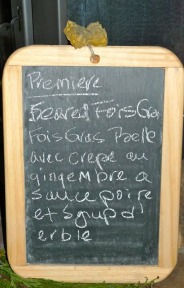 Premiere
Seared Fois Gra
Fois Gras Poelle
avec crepe au
gingembre a
sauce poire
et syrup d'
erble